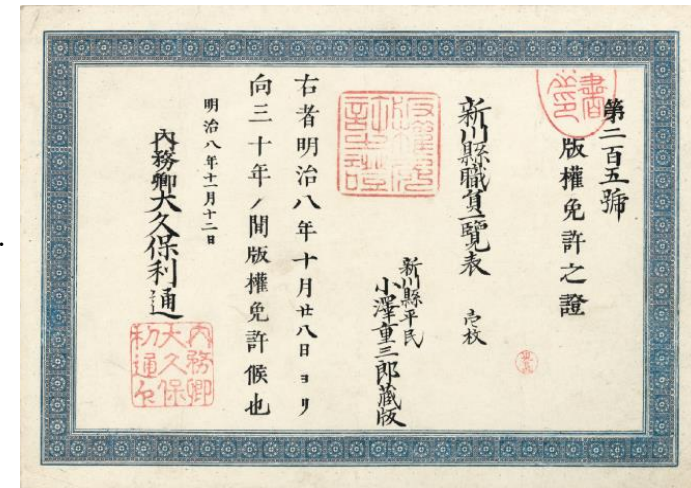 第二百五號
版權免許之證
新川縣職員一覽表 壱枚
新川縣平民
小澤重三郎藏版
右者明治八年十月廿八日ヨリ
向三十年ノ間版權免許候也
明治八年十一月十二日
內務卿大久保利通
內務卿
大久保
利通印